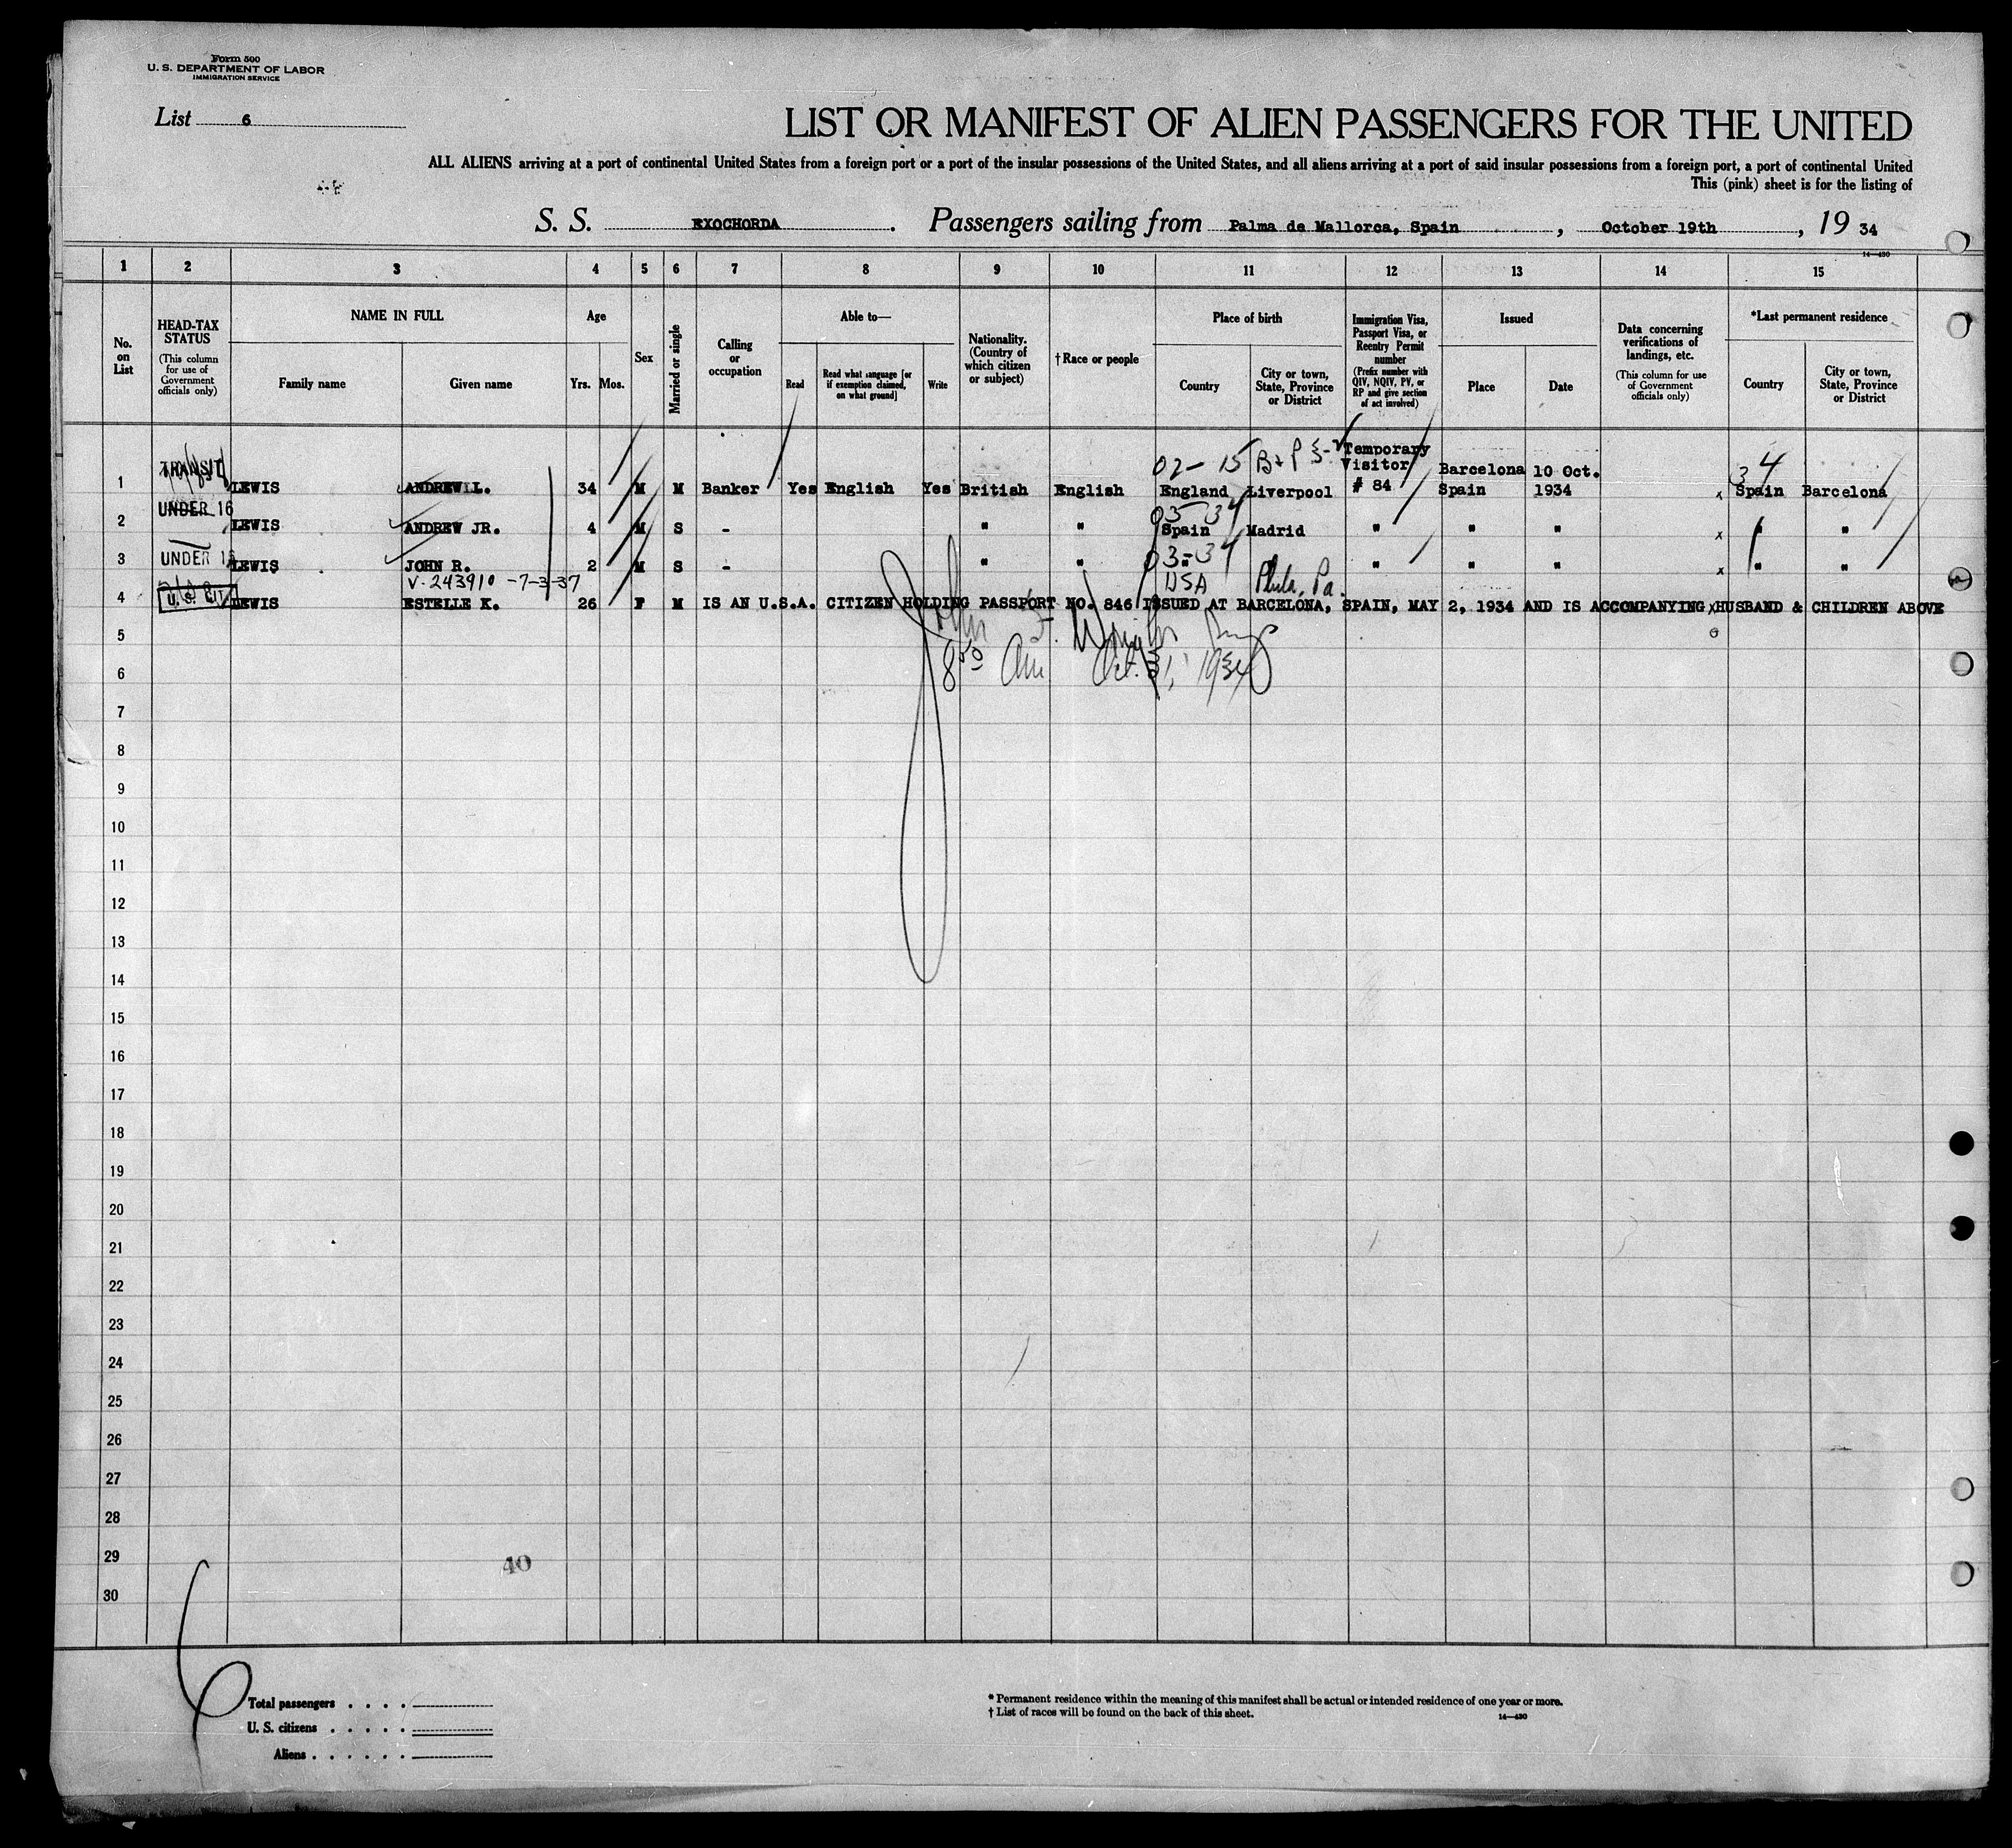 Form 500
U. S. DEPARTMENT OF LABOR
IMMIGRATION SERVICE
List 6
LIST OR MANIFEST OF ALIEN PASSENGERS FOR THE UNITED
ALL ALIENS arriving at a port of continental United States from a foreign port or a port of the insular possessions of the United States, and all aliens arriving at a port of said insular possessions from a foreign port, a port of continental United
This (pink) sheet is for the listing of
S. S. EXOCHORDA. Passengers sailing from Palma de Mallorca, Spain, October 19th, 19 34
14—430
1 2 3 4 5 6 7 8 9 10 11 12 13 14 15
No. on List
HEAD-TAX STATUS
(This column for use of Government officials only)
NAME IN FULL
Family name
Given name
Age
Yrs. Mos.
Sex
Married or single
Calling or occupation
Able to—
Read
Read what language [or if exemption claimed, on what ground]
Write
Nationality. (Country of which citizen or subject)
†Race or people
Place of birth
Country
City or town, State, Province or District
Immigration Visa, Passport Visa, or Reentry Permit number
(Prefix number with QIV, NQIV, PV, or RP and give section of act involved)
Issued
Place
Date
Data concerning verifications of landings, etc.
(This column for use of Government officials only)
*Last permanent residence
Country
City or town, State, Province or District
02-15 B+P Temporary
TRANSIT Visitor Barcelona 10 Oct. 34
1 LEWIS ANDREW L. 34 M M Banker Yes English Yes British English England Liverpool # 84 Spain 1934 x Spain Barcelona
UNDER 16 03-34
2 LEWIS ANDREW JR. 4 M S - " " Spain Madrid " " " x " "
03-34
3 UNDER 16 LEWIS JOHN R. 2 M S - " " " " " " x " "
V-243910 -7-3-37 USA Phila, Pa.
4 U. S. CIT. LEWIS ESTELLE K. 26 F M IS AN U.S.A. CITIZEN HOLDING PASSPORT NO. 846 ISSUED AT BARCELONA, SPAIN, MAY 2, 1934 AND IS ACCOMPANYING x HUSBAND & CHILDREN ABOVE
5
6 8 50 Am Oct. 31, 1934
7
8
9
10
11
12
13
14
15
16
17
18
19
20
21
22
23
24
25
26
27
28
29 40
30
Total passengers . . . .
U. S. citizens . . . . .
Aliens . . . . . .
* Permanent residence within the meaning of this manifest shall be actual or intended residence of one year or more.
† List of races will be found on the back of this sheet.
14—430